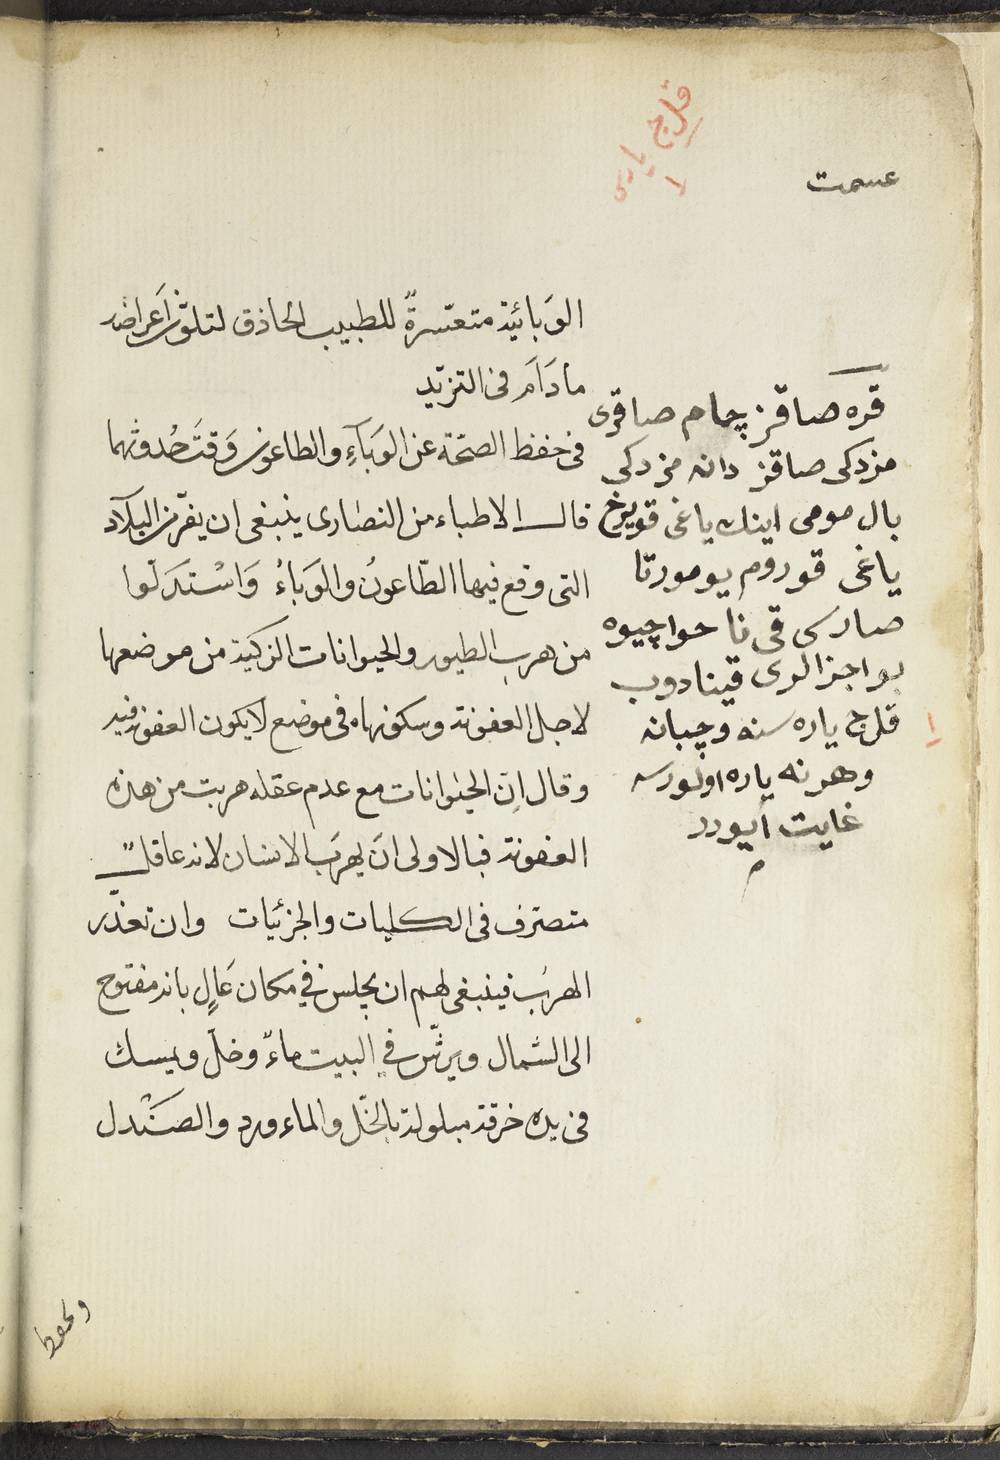 قلرج
يارسى
عسمت
الوَبائيّة متعسّرةً للطبيب الحاذق لتلوّث اَعراضه
مادَامَ فى التزيّد
فى حفظ الصحّة عن الوَبآءِ والطاعون وَقتَ حُدوثهما
قال الاطباء من النصارى ينبغى ان يفرّ من البلاد
التى وقع فيها الطّاعونُ والوَباءُ وَاسْتدَلّوا
من هرب الطيور والحيوانات الزكيّة من موضعها
لاجل العفونة وسكونها فى موضع لا يكون العفونة فيه
وقال اِن الحيوانات مع عدم عقله هربت من هذه
العفونة فبالاولى اَن يهرَب الانسان لانه عاقلٌ
متصرّف فى الكليات والجزئيات وان تعذّر
الهرَب فينبغى لهم ان يجلس في مكان عَالٍ بابه مفتوح
الى الشمال ويرشّ في البيت ماءً وخلّ ويمسك
فى يده خرقة مبلولة بالخلّ والماء ورد والصَنْدل
قره صاقز چام صاقزى
مزدكى صاقز دانه مزدكى
بال مومى اينك ياغى قويرغ
ياغى قوروم يومورتا
صارسى قى نا حواجيوه
بو اجزالرى قينادوب
قلرج ياره سنه وچبانه
وهر نه ياره اولورسه
غايت ايودر
م
١